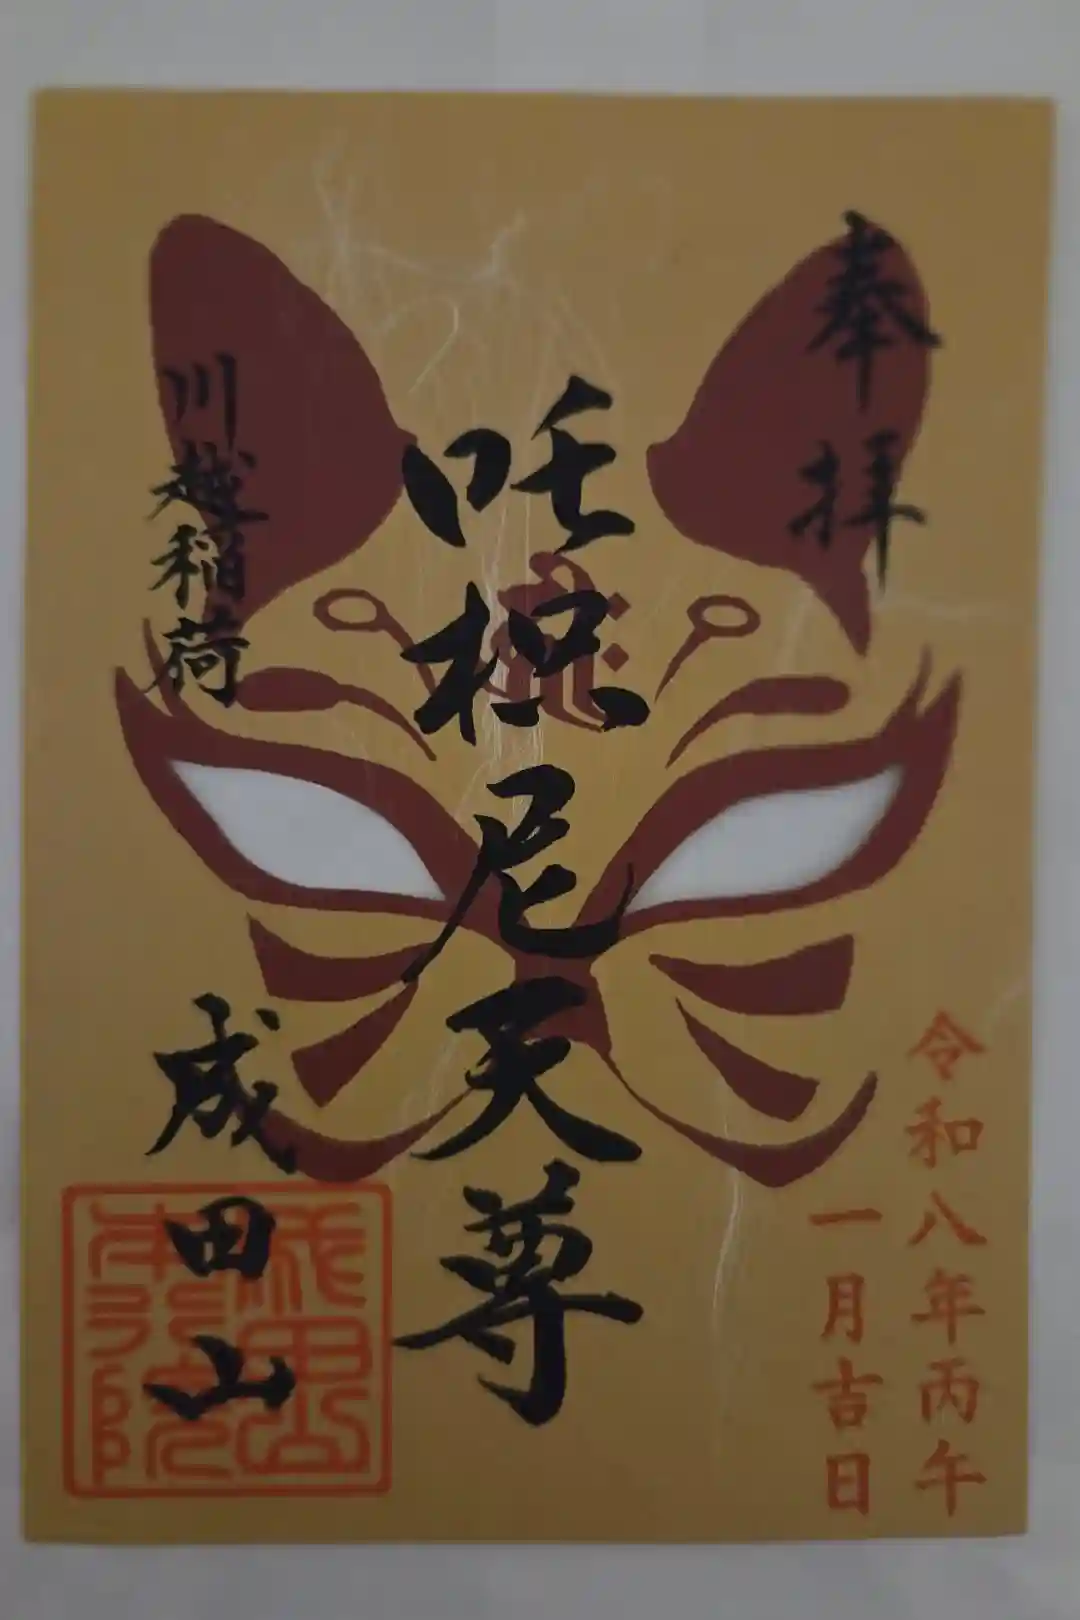 奉拝
令和八年丙午
一月吉日
吒枳尼天尊
川越稲荷
成田山
成田山
本行院